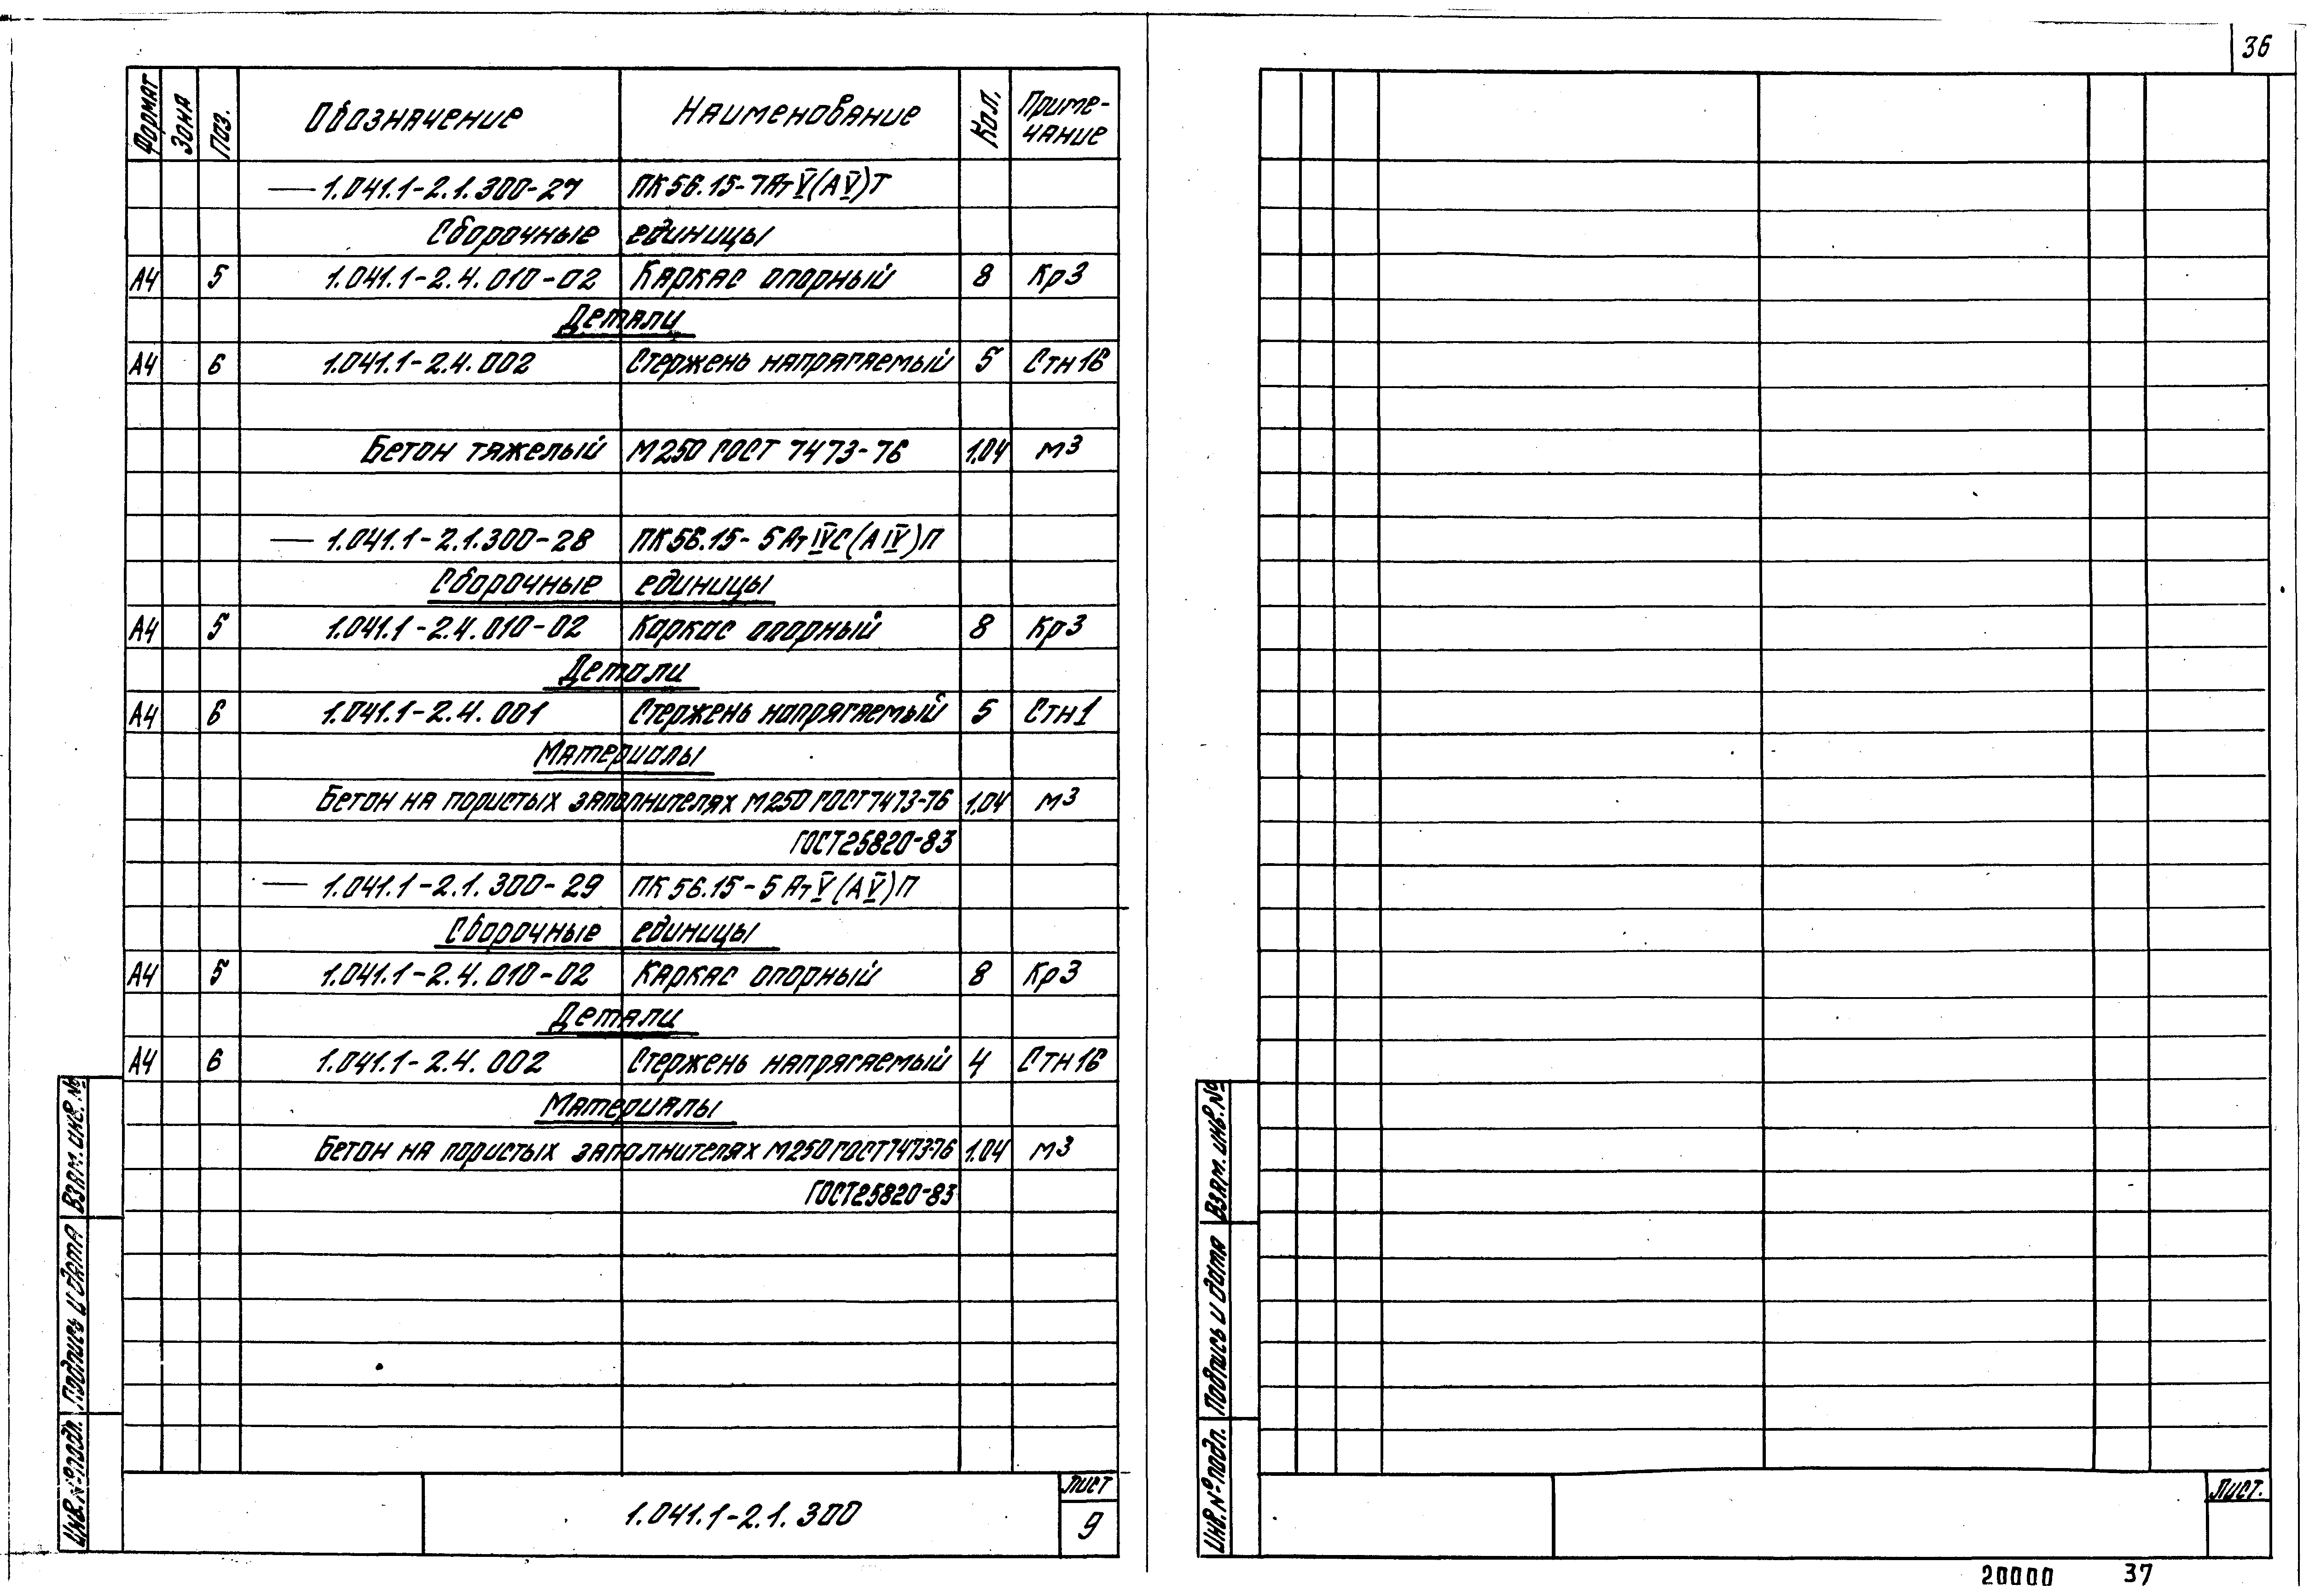 36
Формат Зона Поз. Обозначение Наименование Кол. Приме-
чание
— 1.041.1-2.1.300-27 ПК56.15-7АтV(АV)Т
Сборочные единицы
А4 5 1.041.1-2.4.010-02 Каркас опорный 8 Кр3
Детали
А4 6 1.041.1-2.4.002 Стержень напрягаемый 5 Стн16
Бетон тяжелый М250 ГОСТ 7473-76 1.04 м3
— 1.041.1-2.1.300-28 ПК56.15-5АтIVС(АIV)П
Сборочные единицы
А4 5 1.041.1-2.4.010-02 Каркас опорный 8 Кр3
Детали
А4 6 1.041.1-2.4.001 Стержень напрягаемый 5 Стн1
Материалы
Бетон на пористых заполнителях М250 ГОСТ7473-76 1.04 м3
ГОСТ25820-83
— 1.041.1-2.1.300-29 ПК56.15-5АтV(АV)П
Сборочные единицы
А4 5 1.041.1-2.4.010-02 Каркас опорный 8 Кр3
Детали
А4 6 1.041.1-2.4.002 Стержень напрягаемый 4 Стн16
Материалы
Бетон на пористых заполнителях М250ГОСТ7473-76 1.04 м3
ГОСТ25820-83
Инв.№подл. Подпись и дата Взам.инв.№
1.041.1-2.1.300
Лист
9
Инв.№подл. Подпись и дата Взам.инв.№
Лист.
20000 37